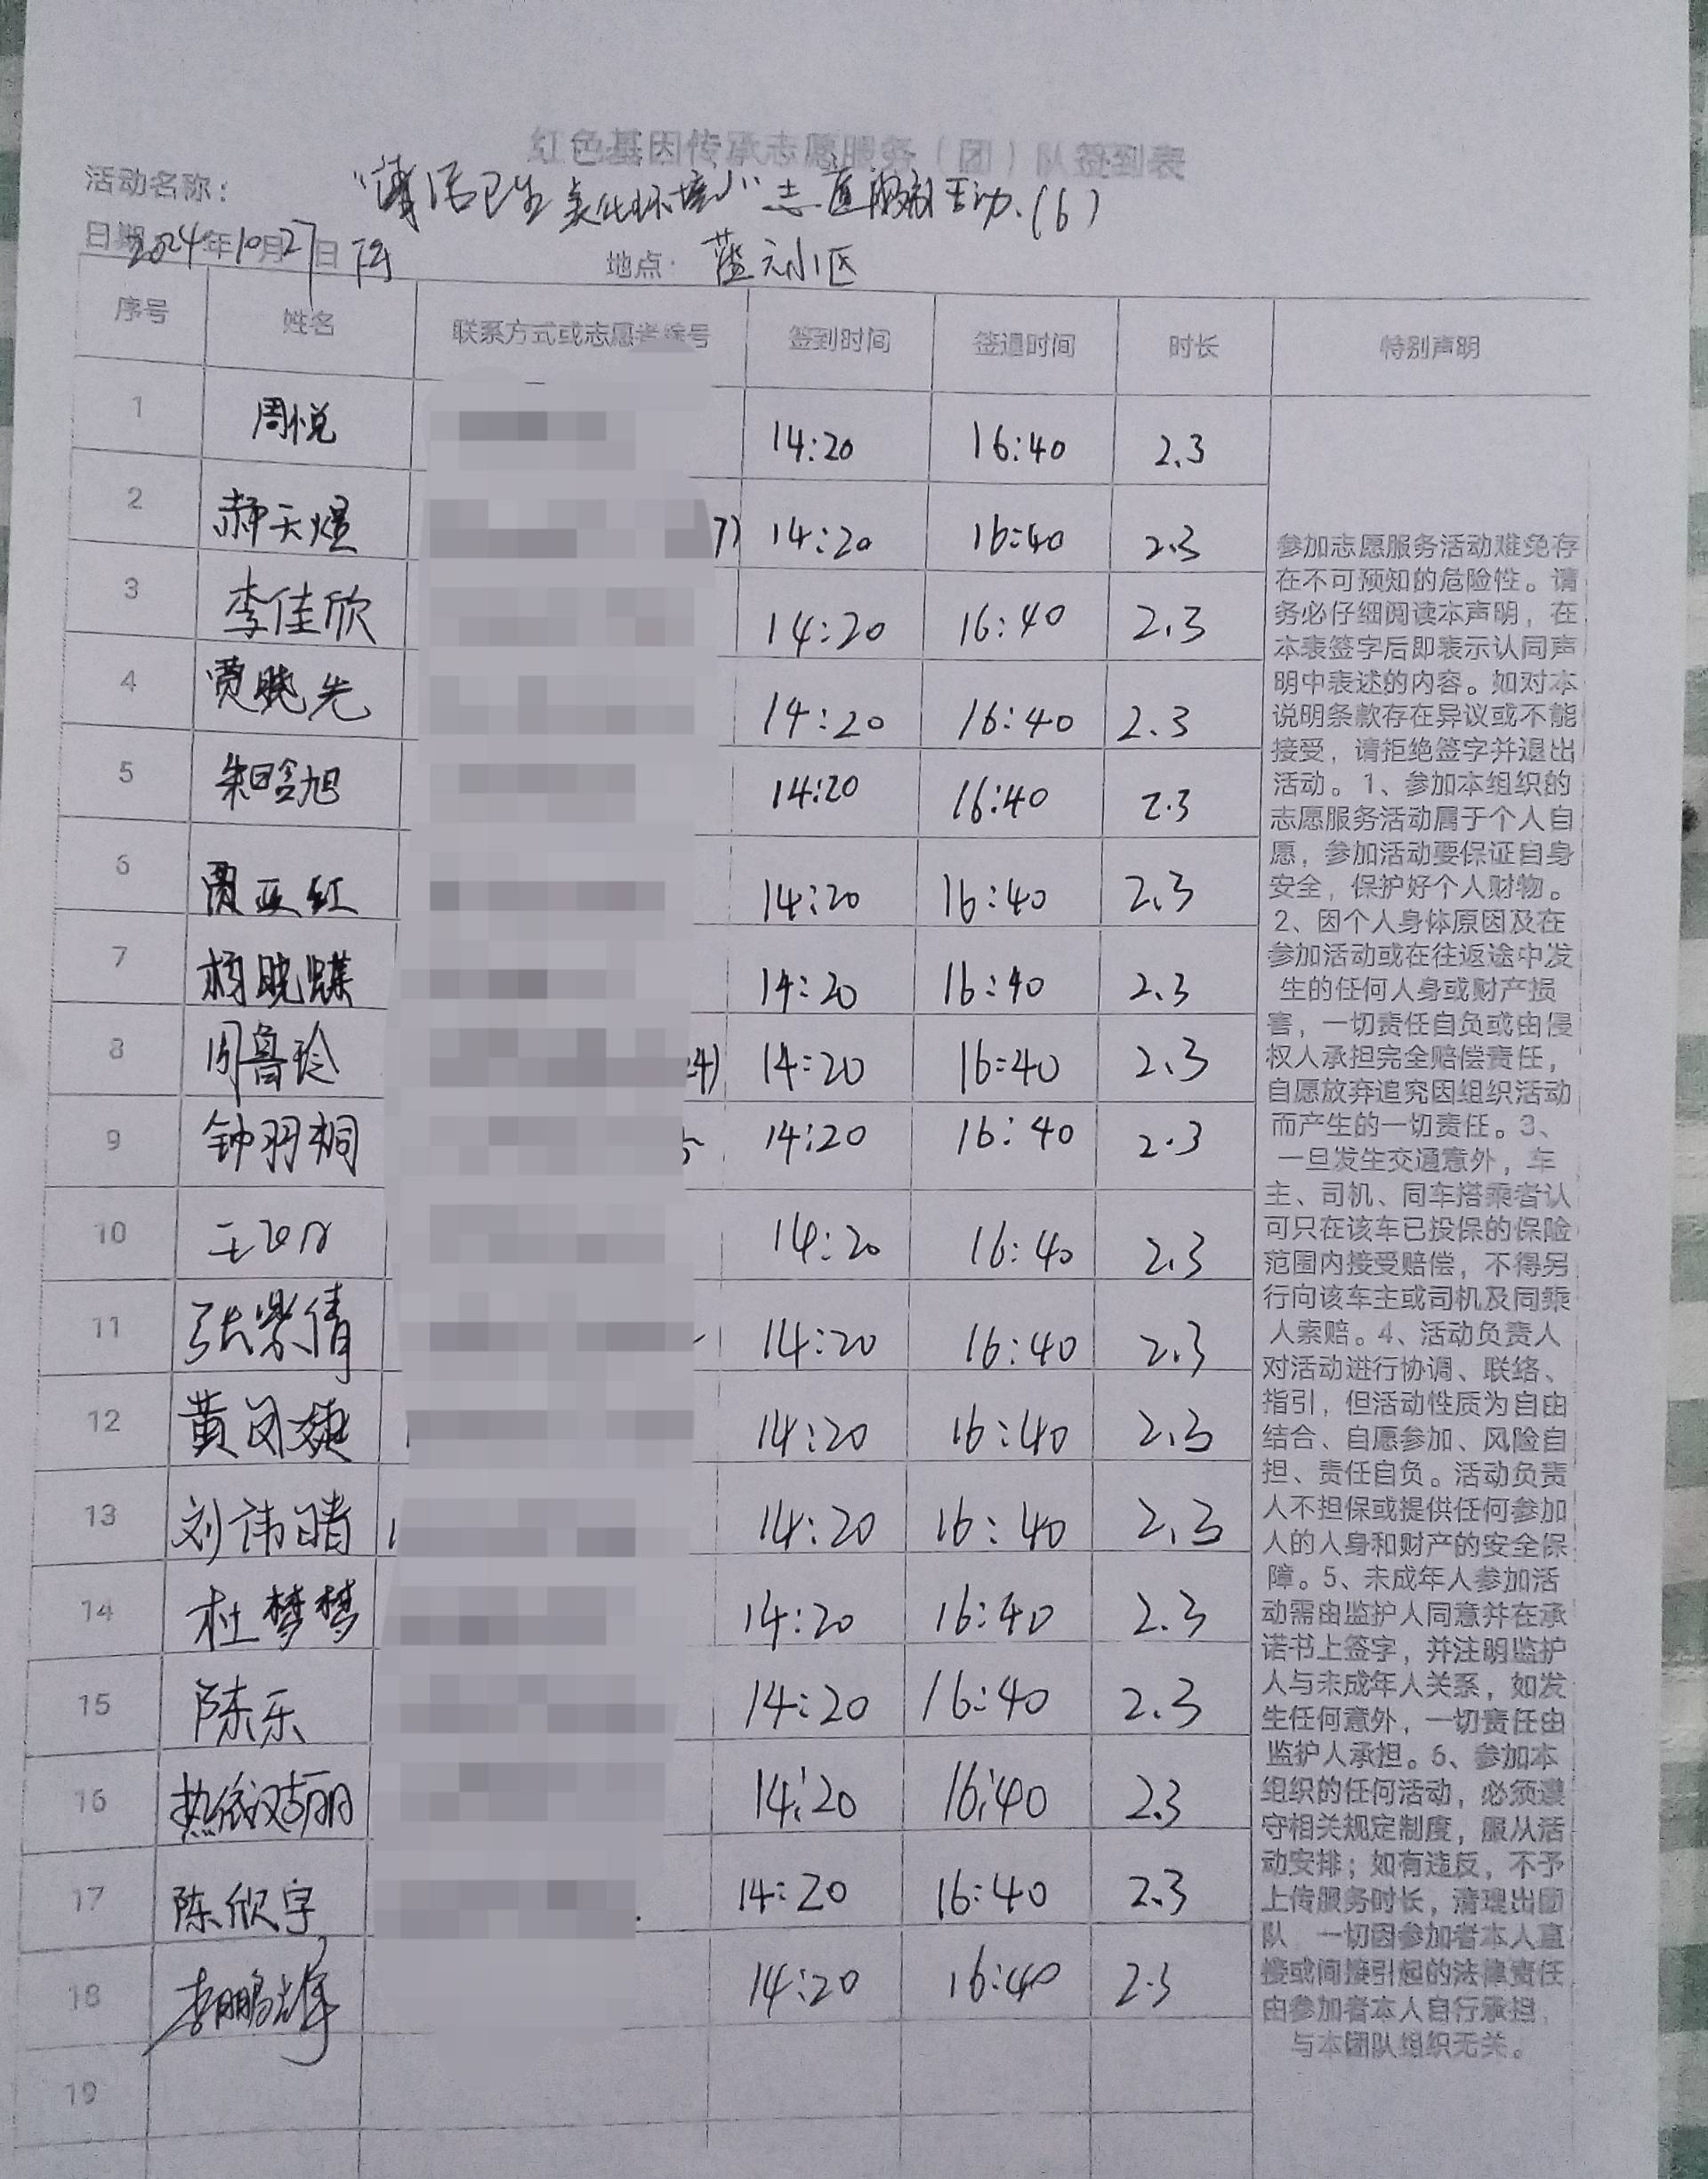 红色基因传承志愿服务（团）队签到表
活动名称： "清洁卫生 美化环境" 志愿服务活动 (6)
日期 2024年10月27日 下午 地点： 蓝云小区
序号 姓名 联系方式或志愿者编号 签到时间 签退时间 时长 特别声明
1 周悦 14:20 16:40 2.3
2 郝天煜 7) 14:20 16:40 2.3
3 李佳欣 14:20 16:40 2.3
4 贾晓先 14:20 16:40 2.3
5 朱晗旭 14:20 16:40 2.3
6 贾亚红 14:20 16:40 2.3
7 杨晓蝶 14:20 16:40 2.3
8 周鲁玲 4) 14:20 16:40 2.3
9 钟羽桐 14:20 16:40 2.3
10 14:20 16:40 2.3
11 张紫倩 14:20 16:40 2.3
12 黄闵婕 14:20 16:40 2.3
13 刘祎晴 14:20 16:40 2.3
14 杜梦梦 14:20 16:40 2.3
15 陈乐 14:20 16:40 2.3
16 14:20 16:40 2.3
17 陈欣宇 14:20 16:40 2.3
18 李鹏辉 14:20 16:40 2.3
19
参加志愿服务活动难免存
在不可预知的危险性。请
务必仔细阅读本声明，在
本表签字后即表示认同声
明中表述的内容。如对本
说明条款存在异议或不能
接受，请拒绝签字并退出
活动。1、参加本组织的
志愿服务活动属于个人自
愿，参加活动要保证自身
安全，保护好个人财物。
2、因个人身体原因及在
参加活动或在往返途中发
生的任何人身或财产损
害，一切责任自负或由侵
权人承担完全赔偿责任，
自愿放弃追究因组织活动
而产生的一切责任。3、
一旦发生交通意外，车
主、司机、同车搭乘者认
可只在该车已投保的保险
范围内接受赔偿，不得另
行向该车主或司机及同乘
人索赔。4、活动负责人
对活动进行协调、联络、
指引，但活动性质为自由
结合、自愿参加、风险自
担、责任自负。活动负责
人不担保或提供任何参加
人的人身和财产的安全保
障。5、未成年人参加活
动需由监护人同意并在承
诺书上签字，并注明监护
人与未成年人关系，如发
生任何意外，一切责任由
监护人承担。6、参加本
组织的任何活动，必须遵
守相关规定制度，服从活
动安排；如有违反，不予
上传服务时长，清理出团
队 一切因参加者本人直
接或间接引起的法律责任
由参加者本人自行承担，
与本团队组织无关。